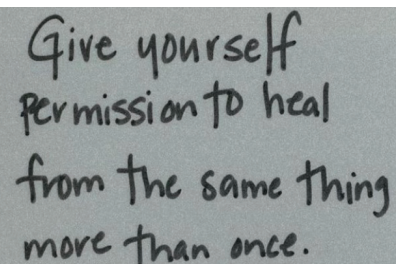 Give yourself
permission to heal
from the same thing
more than once.